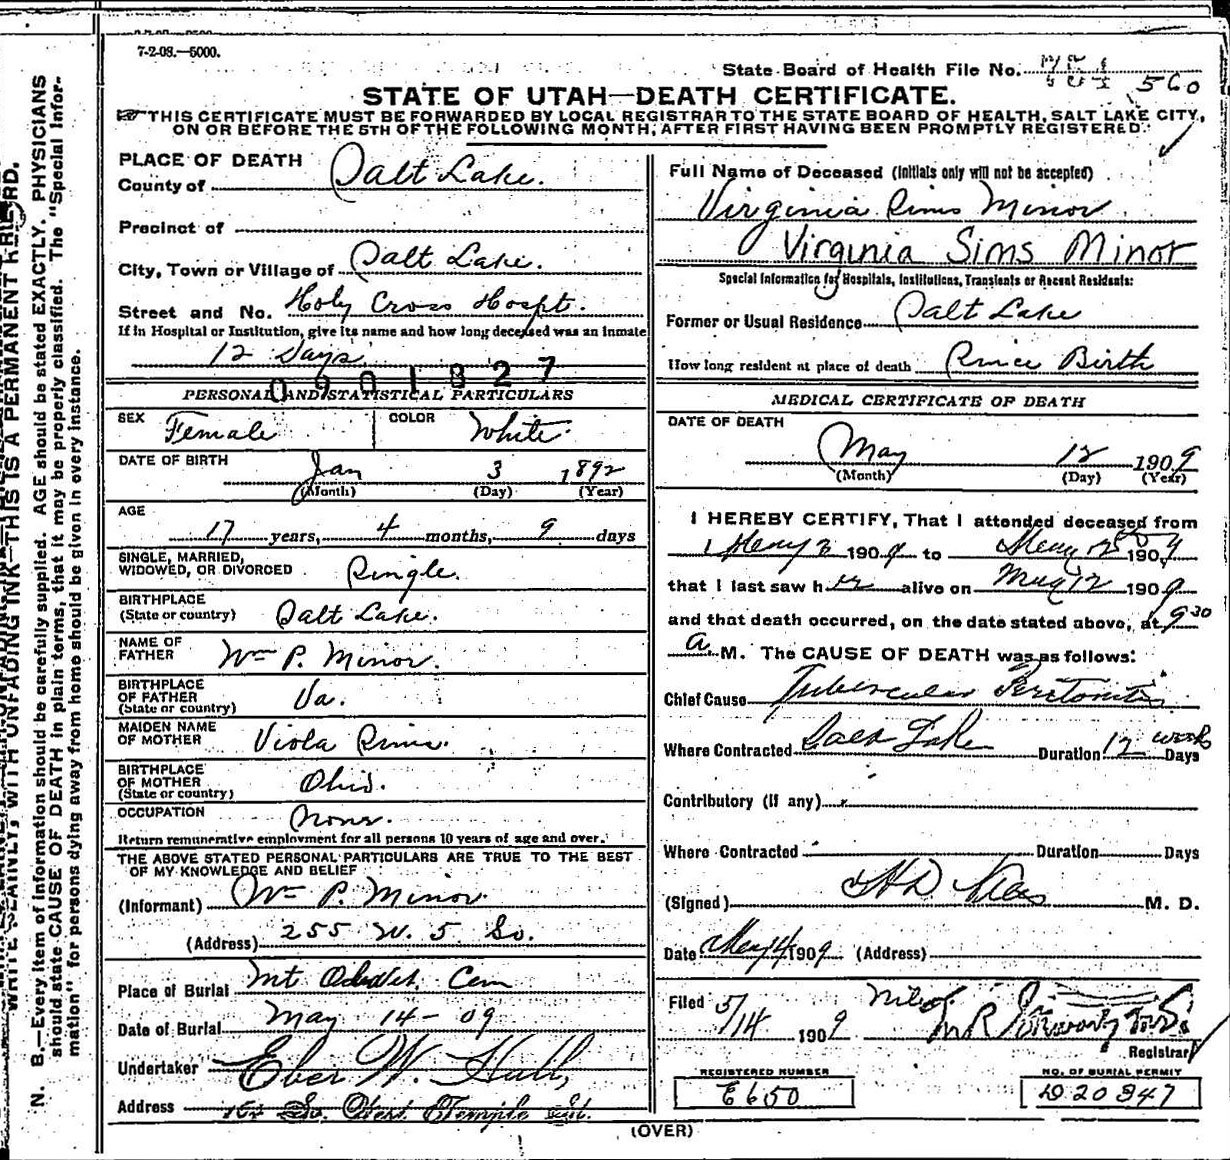 7-2-08.—5000.
State Board of Health File No. 560
STATE OF UTAH—DEATH CERTIFICATE.
THIS CERTIFICATE MUST BE FORWARDED BY LOCAL REGISTRAR TO THE STATE BOARD OF HEALTH, SALT LAKE CITY,
ON OR BEFORE THE 5TH OF THE FOLLOWING MONTH, AFTER FIRST HAVING BEEN PROMPTLY REGISTERED.
PLACE OF DEATH
County of Salt Lake.
Precinct of
City, Town or Village of Salt Lake.
Street and No. Holy Cross Hospt.
If in Hospital or Institution, give its name and how long deceased was an inmate
12 Days
0901827
PERSONAL AND STATISTICAL PARTICULARS
SEX Female COLOR White
DATE OF BIRTH Jan 3 1892
(Month) (Day) (Year)
AGE
17 years, 4 months, 9 days
SINGLE, MARRIED,
WIDOWED, OR DIVORCED Single.
BIRTHPLACE
(State or country) Salt Lake.
NAME OF
FATHER Wm P. Minor.
BIRTHPLACE
OF FATHER
(State or country) Va.
MAIDEN NAME
OF MOTHER Viola Sims.
BIRTHPLACE
OF MOTHER
(State or country) Ohio.
OCCUPATION None.
Return remunerative employment for all persons 10 years of age and over.
THE ABOVE STATED PERSONAL PARTICULARS ARE TRUE TO THE BEST
OF MY KNOWLEDGE AND BELIEF
(Informant) Wm P. Minor.
(Address) 255 W. 5 So.
Place of Burial Mt Olivet Cem
Date of Burial May 14-09
Undertaker Eber W. Hall,
Address So. West Temple St.
Full Name of Deceased (Initials only will not be accepted)
Virginia Sims Minor
Virginia Sims Minor
Special Information for Hospitals, Institutions, Transients or Recent Residents:
Former or Usual Residence Salt Lake
How long resident at place of death Since Birth
MEDICAL CERTIFICATE OF DEATH
DATE OF DEATH
May 12 1909
(Month) (Day) (Year)
I HEREBY CERTIFY, That I attended deceased from
May 2 1909 to May 12 1909
that I last saw her alive on May 12 1909
and that death occurred, on the date stated above, at 9 30
a. M. The CAUSE OF DEATH was as follows:
Chief Cause Tubercular Peritonitis
Where Contracted Salt Lake Duration 12 weeks Days
Contributory (if any)
Where Contracted Duration Days
(Signed) M. D.
Date May 14 1909 (Address)
Filed 5/14 1909
Registrar
REGISTERED NUMBER
E650
NO. OF BURIAL PERMIT
D20347
(OVER)
N. B.—Every item of information should be carefully supplied. AGE should be stated EXACTLY. PHYSICIANS
should state CAUSE OF DEATH in plain terms, that it may be properly classified. The "Special Infor-
mation" for persons dying away from home should be given in every instance.
WRITE PLAINLY, WITH UNFADING INK—THIS IS A PERMANENT RECORD.